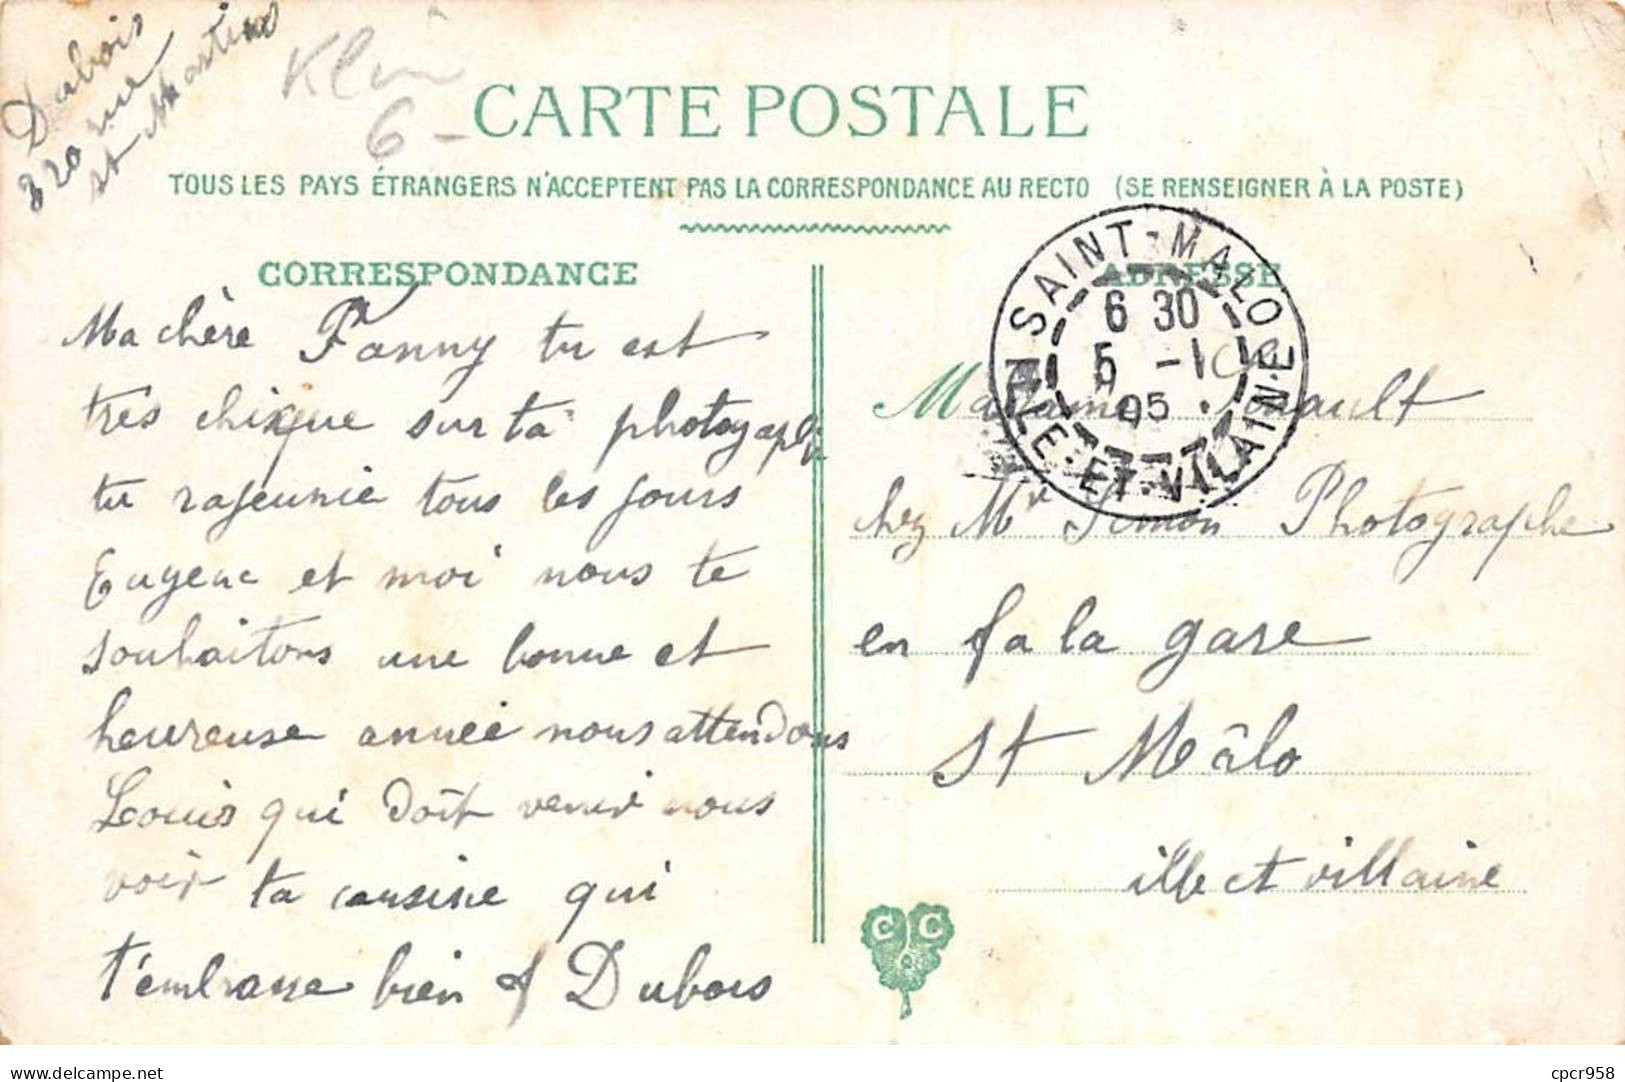 Dubois
320 rue
st Martin
6 -
CARTE POSTALE
TOUS LES PAYS ÉTRANGERS N'ACCEPTENT PAS LA CORRESPONDANCE AU RECTO (SE RENSEIGNER À LA POSTE)
CORRESPONDANCE
Ma chère Fanny tu est
tres chique sur ta photograph
tu rajeunie tous les jours
Eugene et moi nous te
souhaitons une bonne et
heureuse année nous attendons
Louis qui doit venir nous
voir ta cousine qui
t'embrasse bien f Dubois
ADRESSE
SAINT-MALO
6 30
5 -1
05
ILLE-ET-VILAINE
Madame
chez Mr Simon Photographe
en fa la gare
St Mâlo
ille et villaine
C C
&
www.delcampe.net
cpcr958